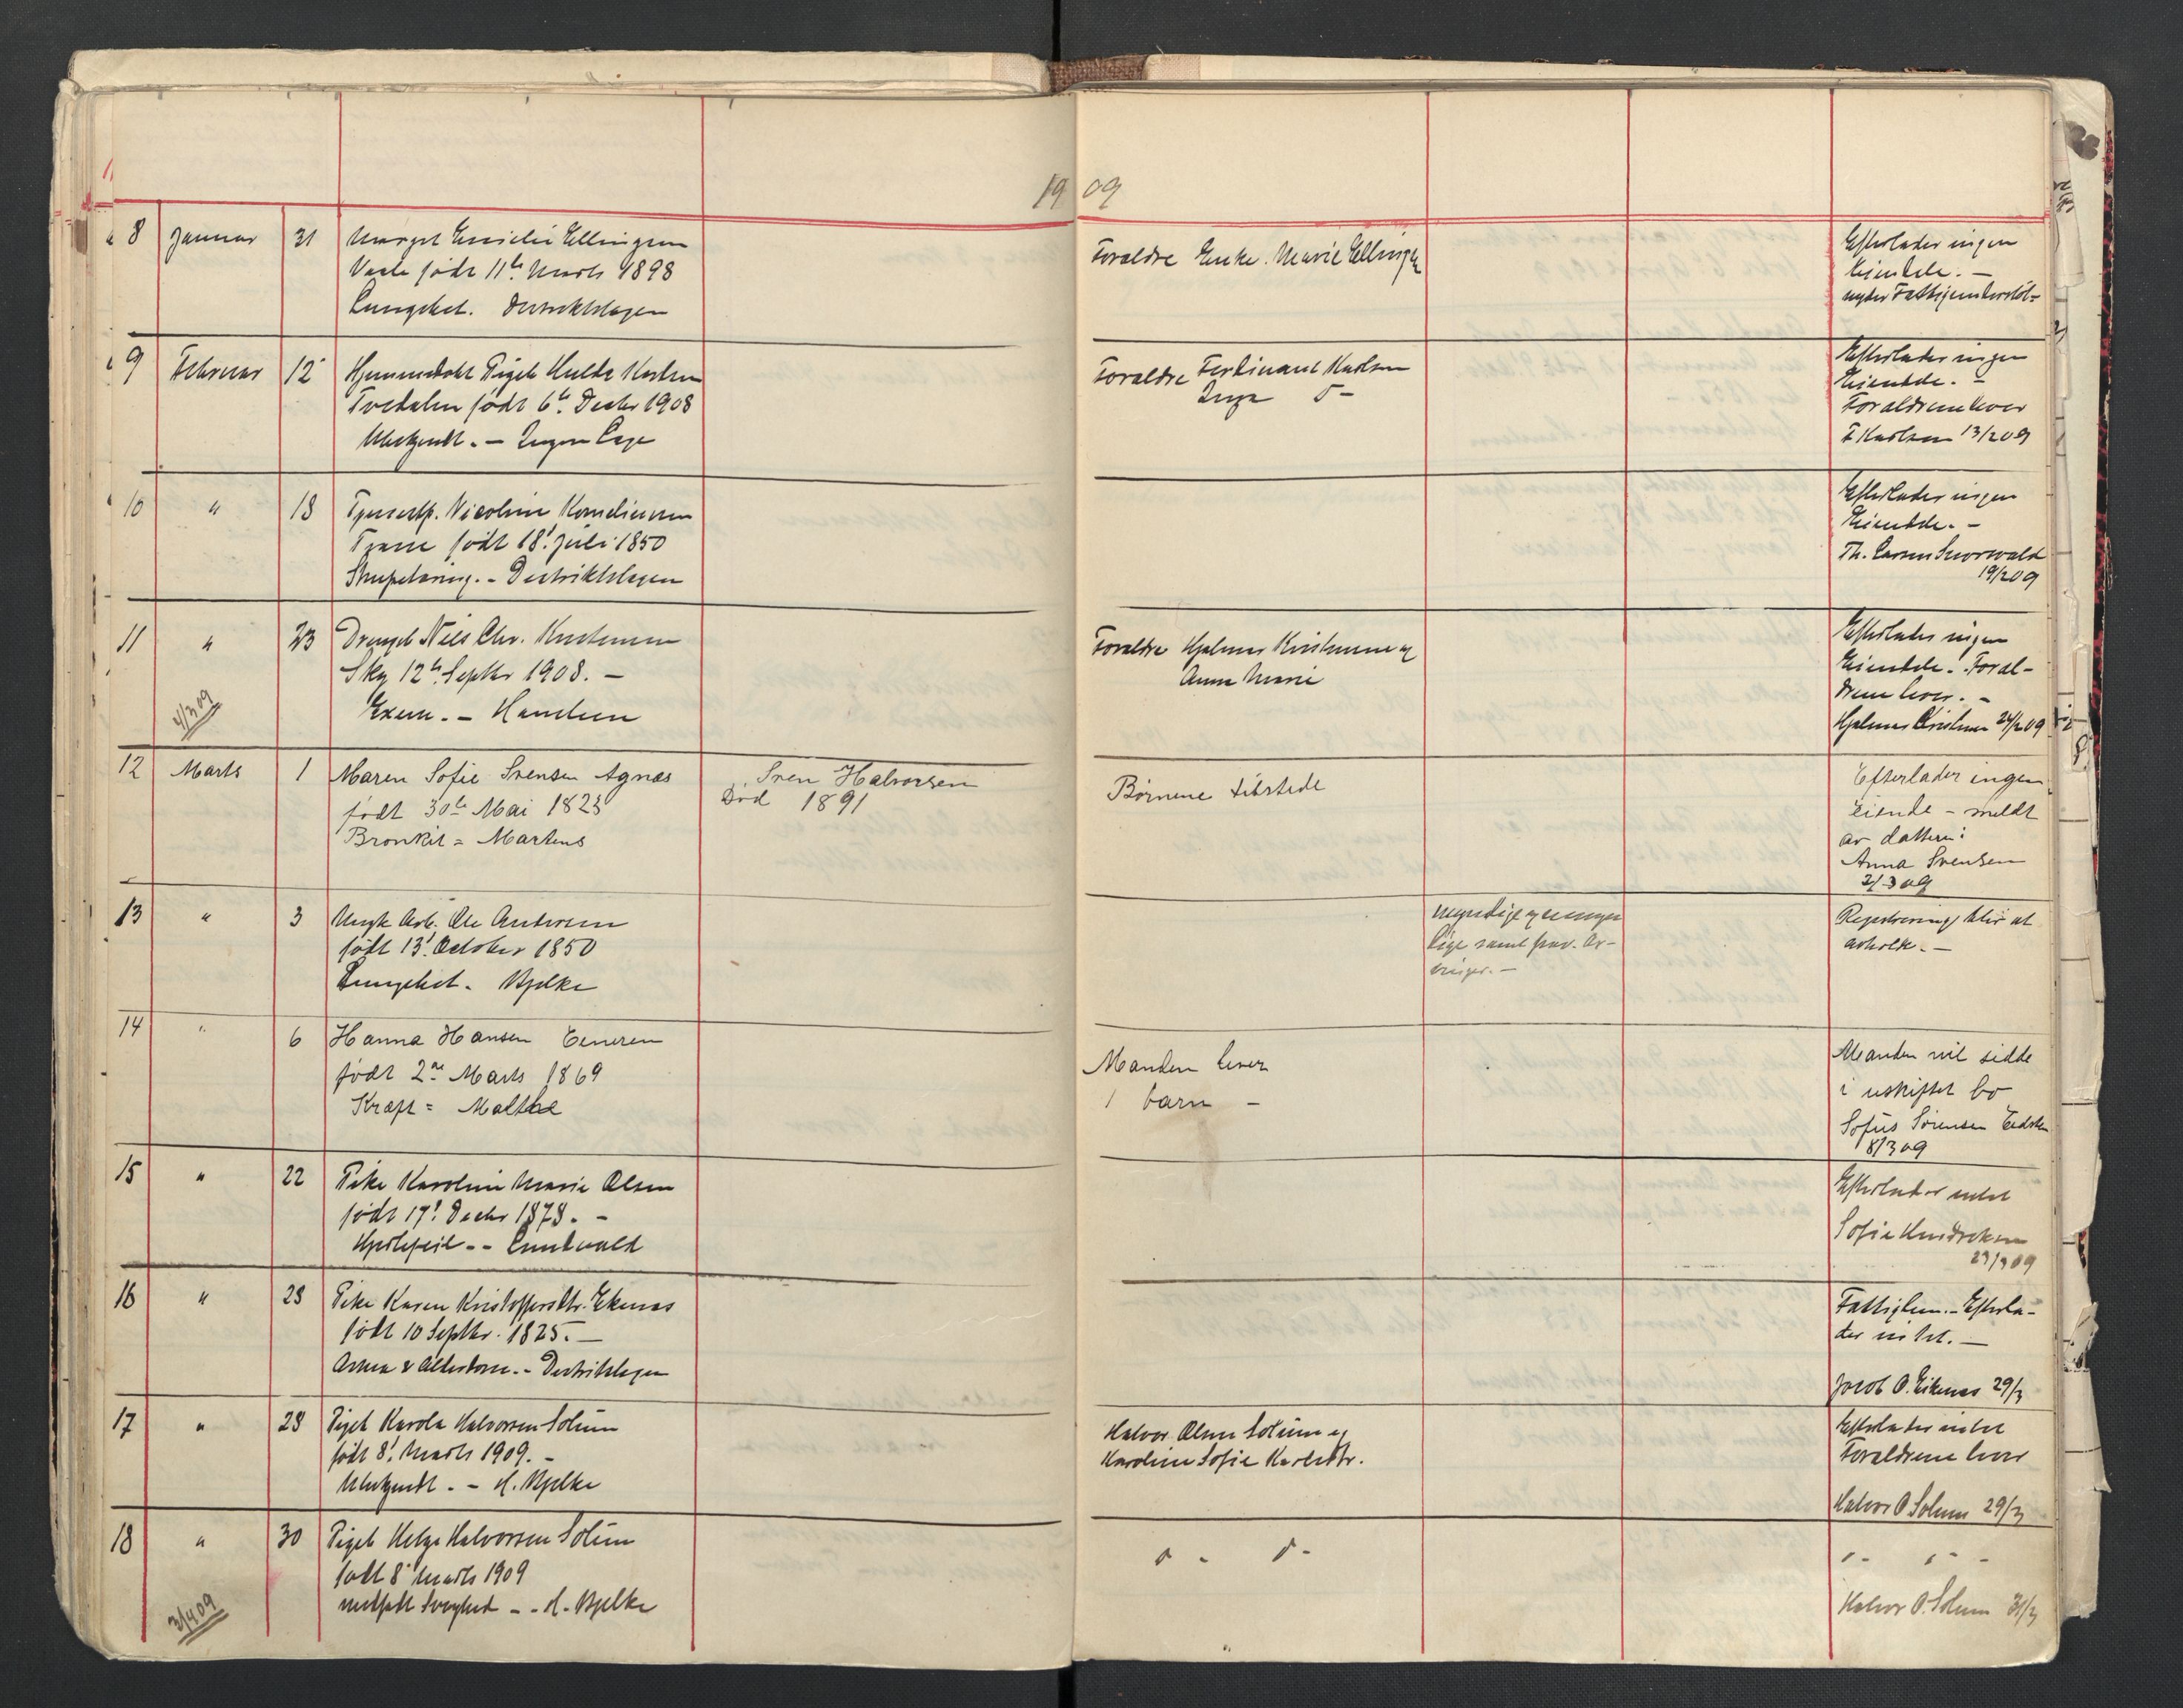 1909
8 Januar 31 Margit Emilie Ellingsen
Vasle født 11te Marts 1898
Lungebet. Distriktslægen
Foraldre Enke. Marie Ellingsen
Efterlader ingen
Eiendele. —
nyder Fattigunderstöt-
9 Februar 12 Hjemmedøbt Pigeb Hulda Karlsen
Tvedalen født 6te Decbr 1908
Ubekjendt. — Ingen Læge
Foraldre Ferdinant Karlsen
Inga D-
Efterlader ingen
Eiendele. —
Foraldrene lever
F Karlsen 13/2 09
10 " 18 Tjenestp. Nicoline Korneliussen
født 18! Juli 1850
Strupetæring. - Distriktslægen
Efterlader ingen
Eiendele. -
Th. Larsen
19/2 09
11 " 23 Drengeb Niels Chr. Kristensen
Sky 12te Septbr 1908. —
Exem. — Hansteen
Foraldre Hjalmar Kristensen og
Anna Marie
Efterlader ingen
Eiendele. Foral-
drene lever. -
Hjalmar Kristensen 24/2 09
4/3 09
12 Marts 1 Maren Sofie Svensen Agnæs
født 30te Mai 1823
Bronkit = Martens
Sven Halvorsen
Død 1891
Børnene tilstede
Efterlader ingen
Eiende - meldt
av datteren:
Anna Svensen
2/3 09
13 " 3 Ungk Arb. Ole Andersen
født 13! October 1850
Lungebet. Bjelke
umyndige og
samt frav. Ar-
vinger. —
Registrering blir at
avholde. —
14 " 6 Hanna Hansen
født 2den Marts 1869
Kræft = Malthe
Manden lever
1 barn -
Manden vil sidde
i uskiftet bo
Sofus Sörensen
8/3 09
15 " 22 Pike Karoline Marie Olsen
født 17! Decbr 1878. -
Hjertefeil -- Lundwald
Efterlader intet
Sofie Hendriksen
23/3 09
16 " 23 Pike Karen Kristoffersdtr. Ekenæs
født 10 Septbr. 1825. —
& Alderdom. - Distriktslægen
Fattiglem. - Efterla-
der intet. —
Jacob O. Eikenæs 29/3
17 " 28 Pigeb Karola Halvorsen Solum
født 8! Marts 1909. -
Ubekjendt. - H. Bjelke
Halvor Olsen Solum og
Karoline Sofie Karlsdtr.
Efterlader intet
Foraldrene lever
Halvor O Solum 29/3
18 " 30 Pigeb Helga Halvorsen Solum
født 8! Marts 1909
medfødt Svaghed - - H. Bjelke
D - D-
D - D - -
Halvor O. Solum 31/3
3/4 09